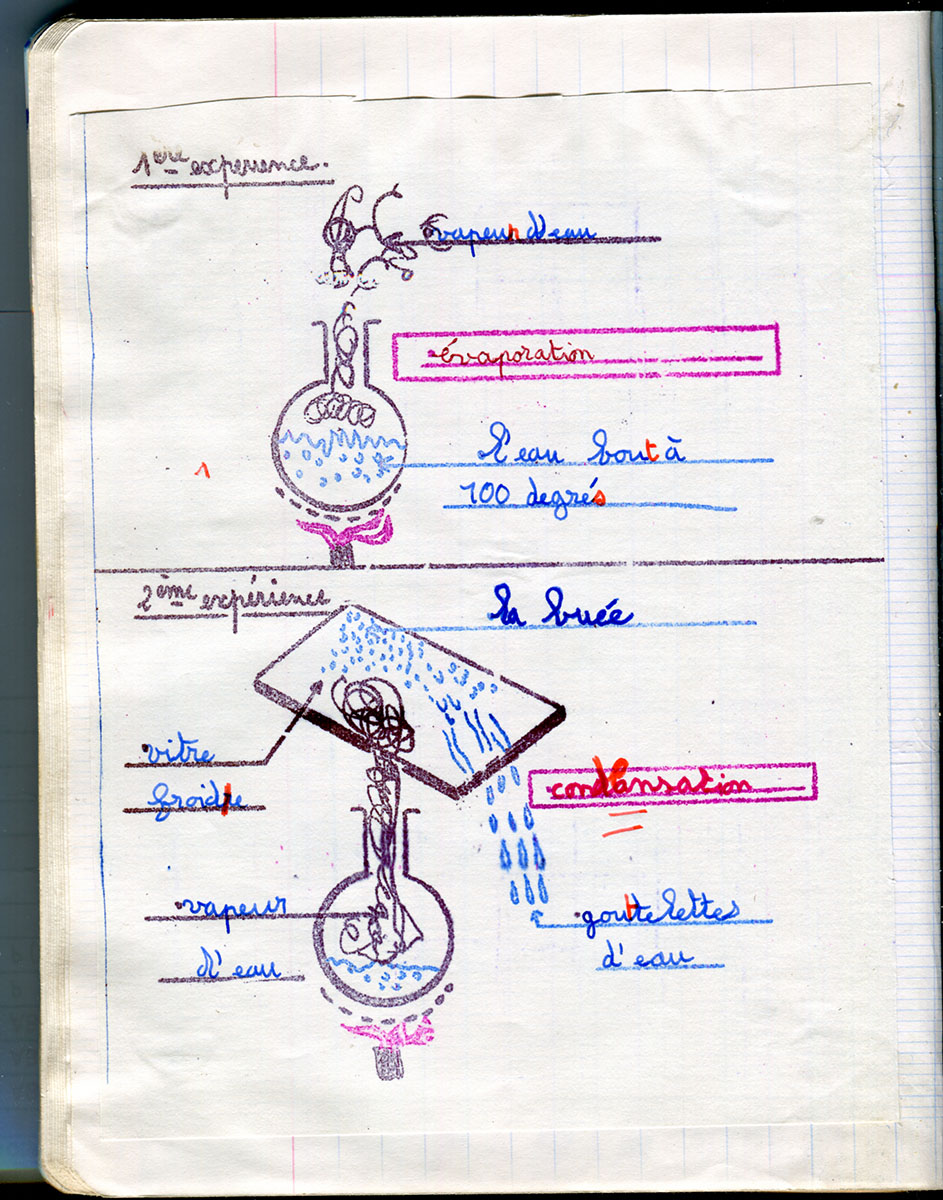 1ère expérience.
vapeur d'eau
évaporation
L'eau bout à
1
100 degrés
2ème expérience
la buée
vitre
froide
condansation
vapeur
d'eau
gouttelettes
d'eau